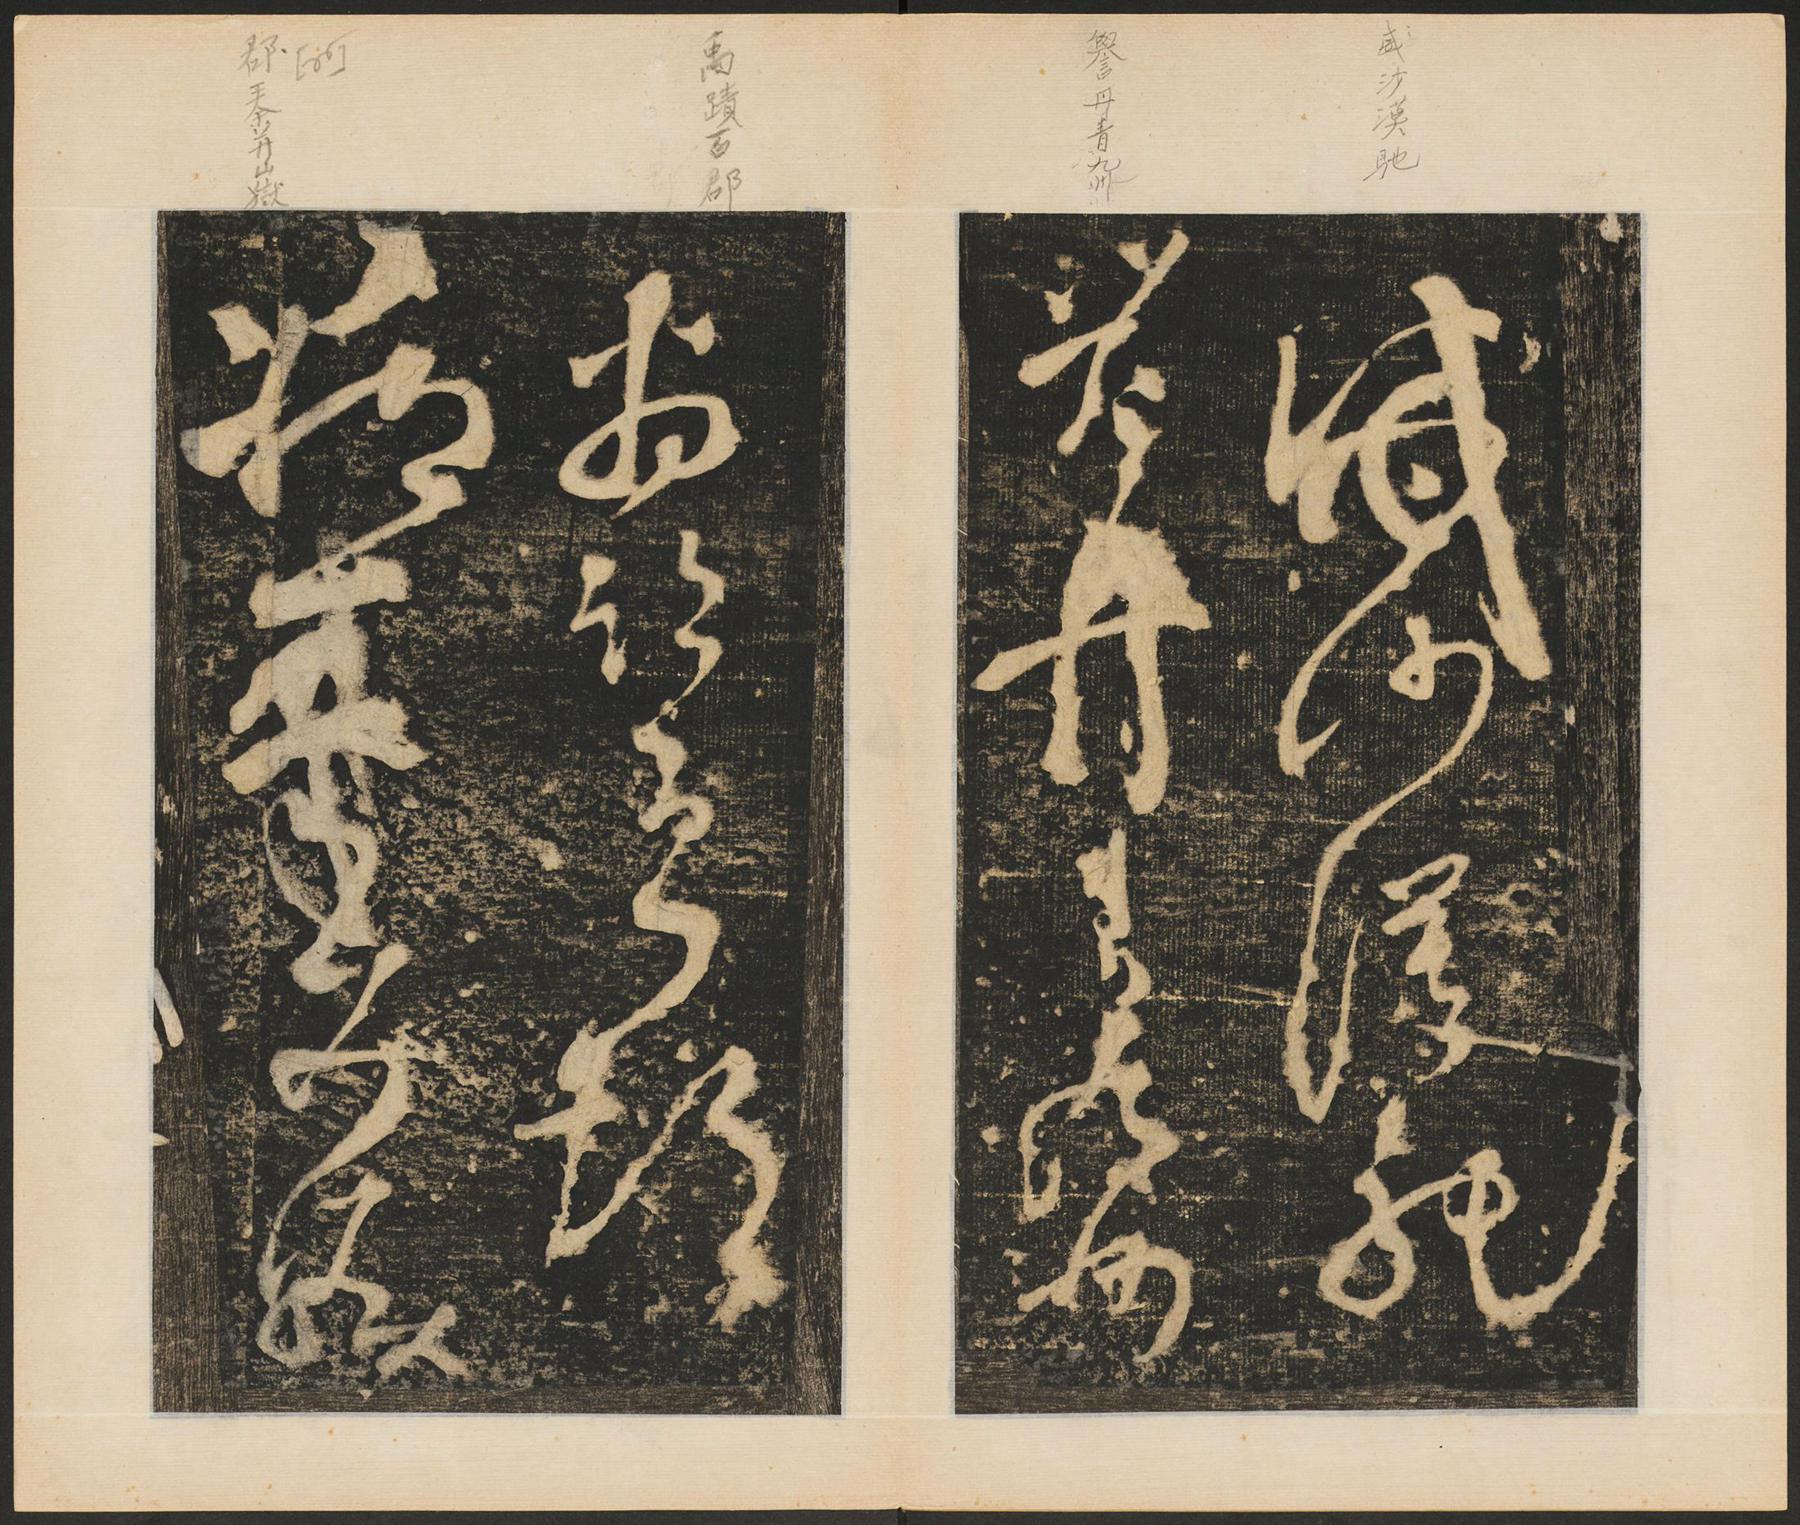 威沙漠馳
譽丹青九州
禹蹟百郡
郡秦并山嶽
威沙漠馳
譽丹青九州
禹跡百郡
秦并嶽